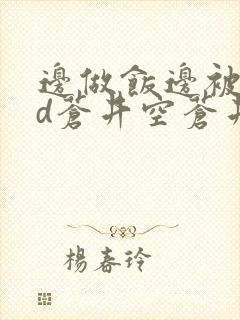 邊做飯邊被
d蒼井空蒼井
楊春玲